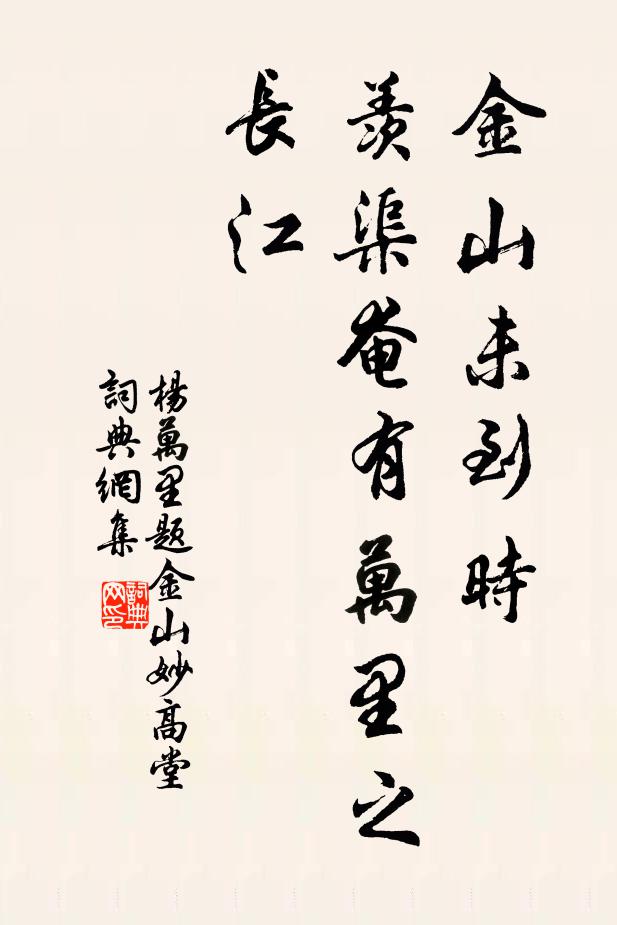 金山未到時
羨渠奄有萬里之
長江
楊萬里題金山妙高堂
詞典網集
詞典
网印